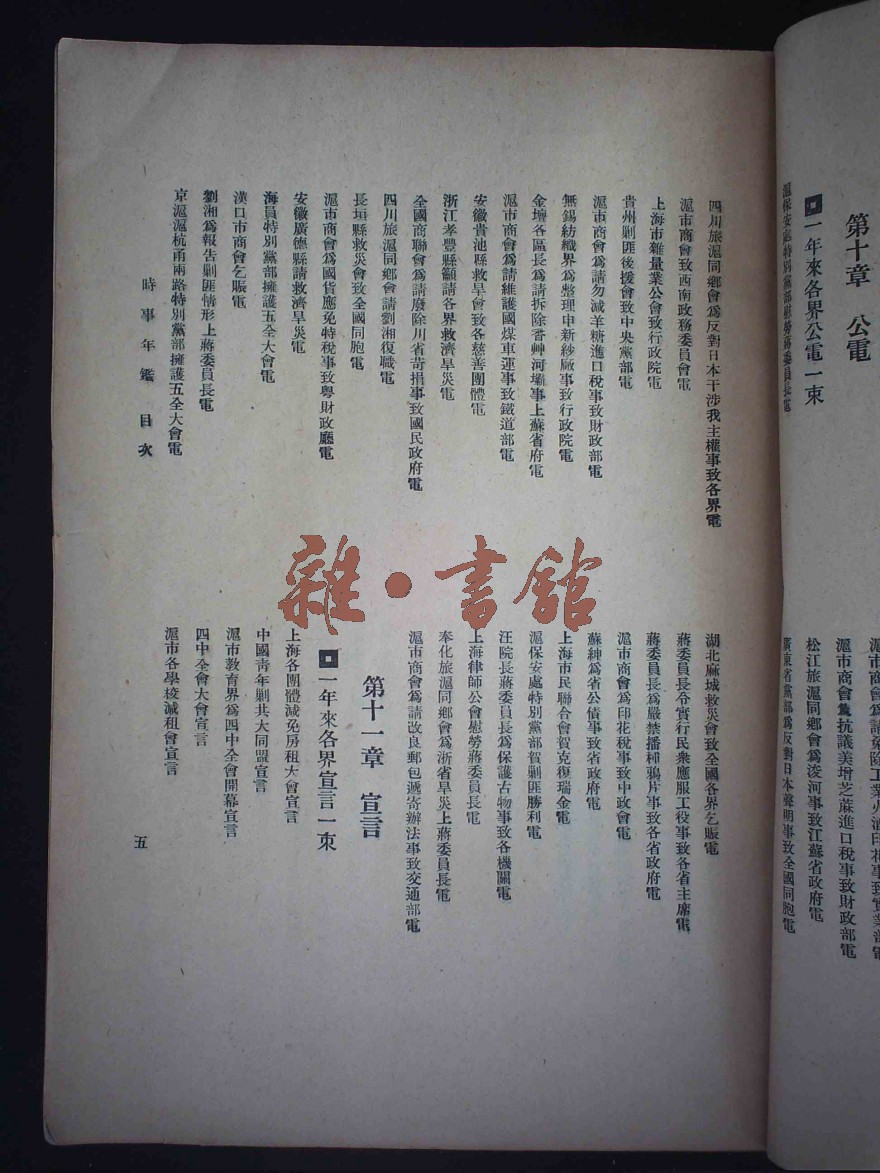 第十章　公電
一年來各界公電一束
滬保安處特別黨部慰勞蔣委員長電
滬市商會爲抗議美增芝蔴進口稅事致財政部電
松江旅滬同鄉會爲浚河事致江蘇省政府電
廣東省黨部爲反對日本聲明事致全國同胞電
四川旅滬同鄉會爲反對日本干涉我主權事致各界電
滬市商會致西南政務委員會電
上海市雜量業公會致行政院電
貴州剿匪後援會致中央黨部電
滬市商會爲請勿減羊糖進口稅事致財政部電
無錫紡織界爲整理申新紗廠事致行政院電
金壇各區長爲請拆除香艸河壩事上蘇省府電
滬市商會爲請維護國煤車運事致鐵道部電
安徽貴池縣救旱會致各慈善團體電
浙江孝豐縣籲請各界救濟旱災電
全國商聯會爲請廢除川省苛捐事致國民政府電
四川旅滬同鄉會請劉湘復職電
長垣縣救災會致全國同胞電
滬市商會爲國貨應免特稅事致粵財政廳電
安徽廣德縣請救濟旱災電
海員特別黨部擁護五全大會電
漢口市商會乞賑電
劉湘爲報告剿匪情形上蔣委員長電
京滬滬杭甬兩路特別黨部擁護五全大會電
湖北麻城救災會致全國各界乞賑電
蔣委員長令實行民衆應服工役事致各省主席電
蔣委員長爲嚴禁播種鴉片事致各省政府電
滬市商會爲印花稅事致中政會電
蘇紳爲省公債事致省政府電
上海市民聯合會賀克復瑞金電
滬保安處特別黨部賀剿匪勝利電
汪院長蔣委員長爲保護古物事致各機關電
上海律師公會慰勞蔣委員長電
奉化旅滬同鄉會爲浙省旱災上蔣委員長電
滬市商會爲請改良郵包遞寄辦法事致交通部電
第十一章　宣言
一年來各界宣言一束
上海各團體減免房租大會宣言
中國青年剿共大同盟宣言
滬市教育界爲四中全會開幕宣言
四中全會大會宣言
滬市各學校減租會宣言
時事年鑑　目次
五
雜·書館